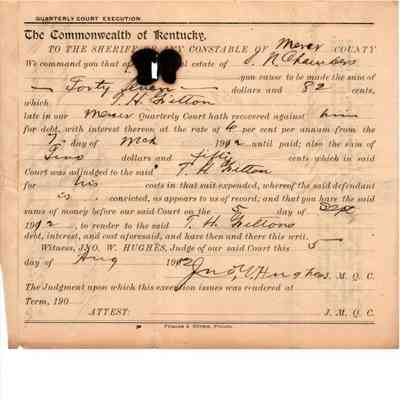 QUARTERLY COURT EXECUTION
The Commonwealth of Kentucky,
TO THE SHERIFF OR ANY CONSTABLE OF Mercer COUNTY
We command you that of estate of J. N Chambers
you cause to be made the sum of
Forty Seven dollars and 82 cents,
which T. H. Gelton
late in our Mercer Quarterly Court hath recovered against him
for debt, with interest thereon at the rate of 6 per cent per annum from the
7 day of Mch 1912 until paid; also the sum of
Two dollars and fifty cents which in said
Court was adjudged to the said T. H. Gelton
for his costs in that suit expended, whereof the said defendant
is convicted, as appears to us of record; and that you have the said
sums of money before our said Court on the 5 day of Sept
1912, to render to the said T. H. Geltons
debt, interest, and cost aforesaid, and have then and there this writ.
Witness, JNO. W. HUGHES, Judge of our said Court this 5
day of Aug 1912 Jno W. Hughes J. M. Q. C.
The Judgment upon which this execution issues was rendered at
Term, 190
ATTEST: J. M. Q. C.